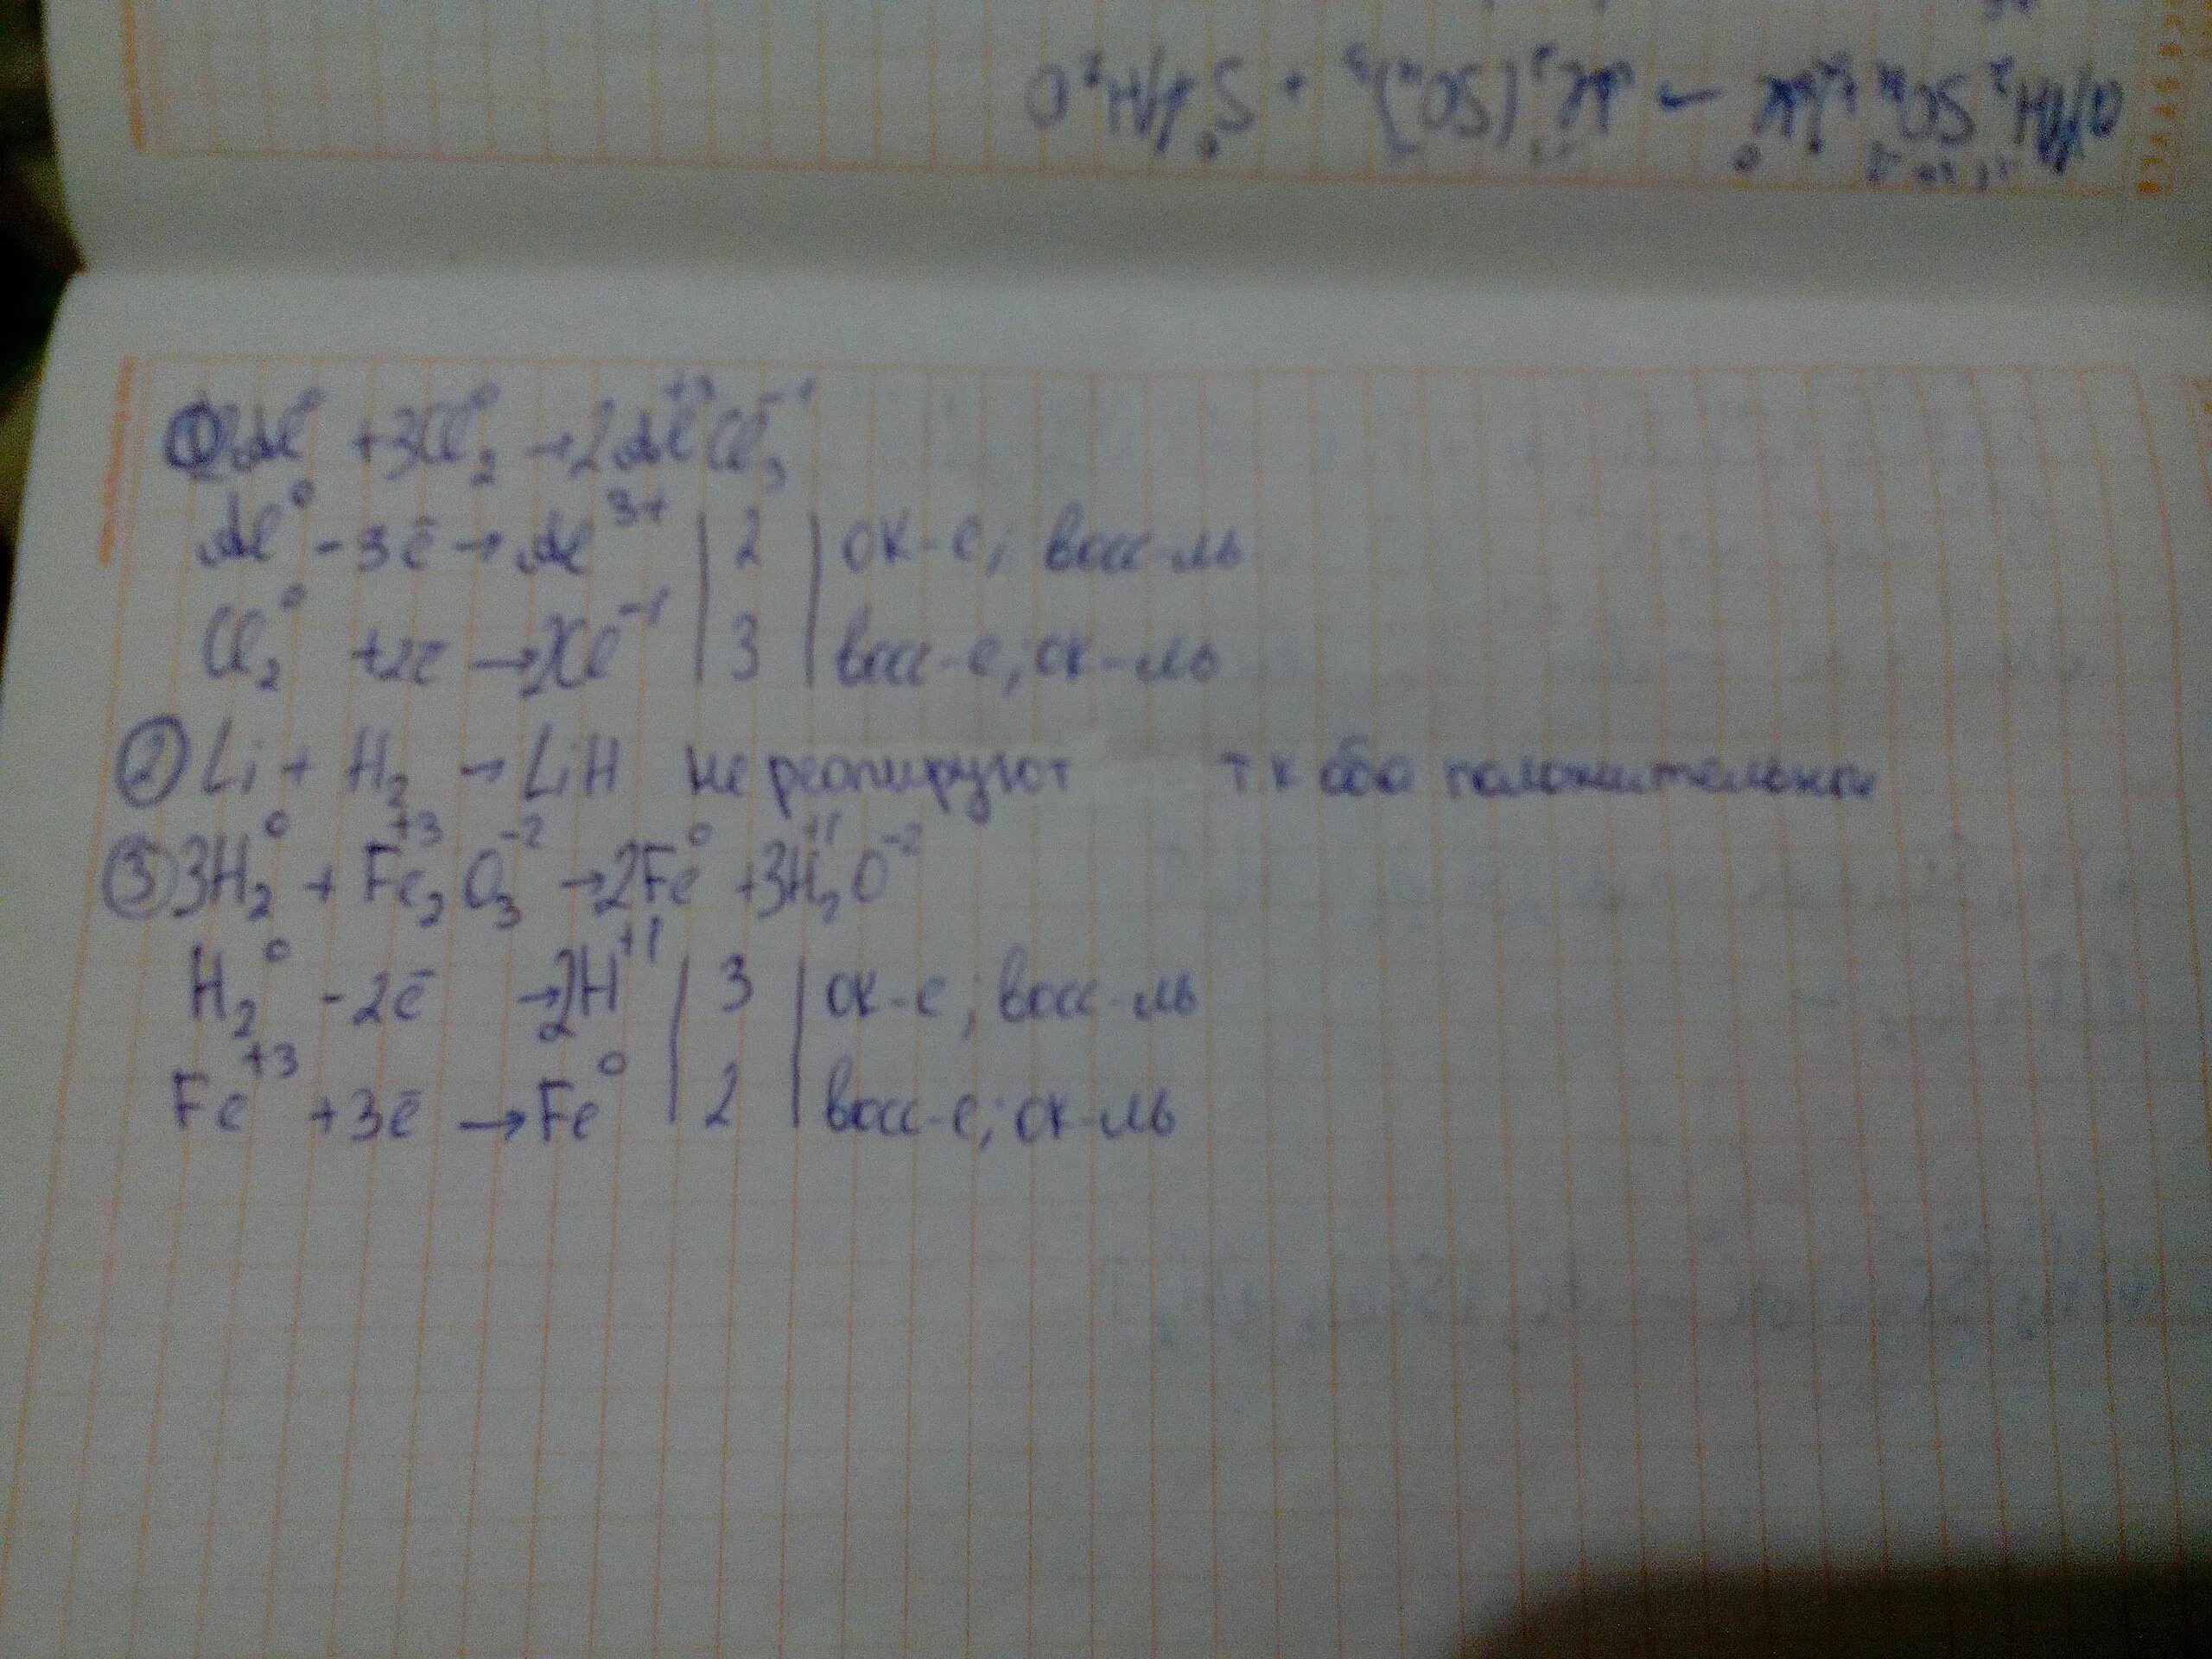 H₂SO₄ + Al⁰ → Al₂(SO₄)₃ + S⁰ H₂O
① 2Al⁰ + 3Cl₂⁰ → 2Al⁺³Cl₃⁻¹
Al⁰ - 3ē → Al³⁺ | 2 | ок-е; восс-ль
Cl₂⁰ + 2ē → 2Cl⁻¹ | 3 | восс-е; ок-ль
② Li + H₂ → LiH не реагируют т к оба положительны
③ 3H₂⁰ + Fe₂⁺³O₃⁻² → 2Fe⁰ + 3H₂⁺¹O⁻²
H₂⁰ - 2ē → 2H⁺¹ | 3 | ок-е; восс-ль
Fe⁺³ + 3ē → Fe⁰ | 2 | восс-е; ок-ль